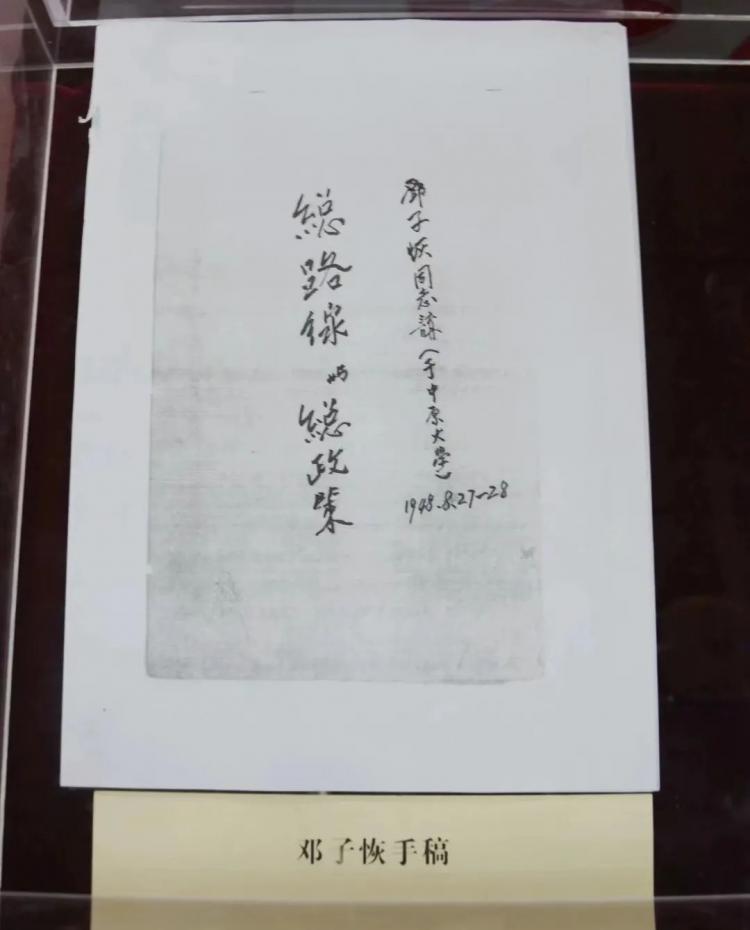 鄧子恢同志講（于中原大學）
1948.8.27-28
総路線与総政策
邓子恢手稿